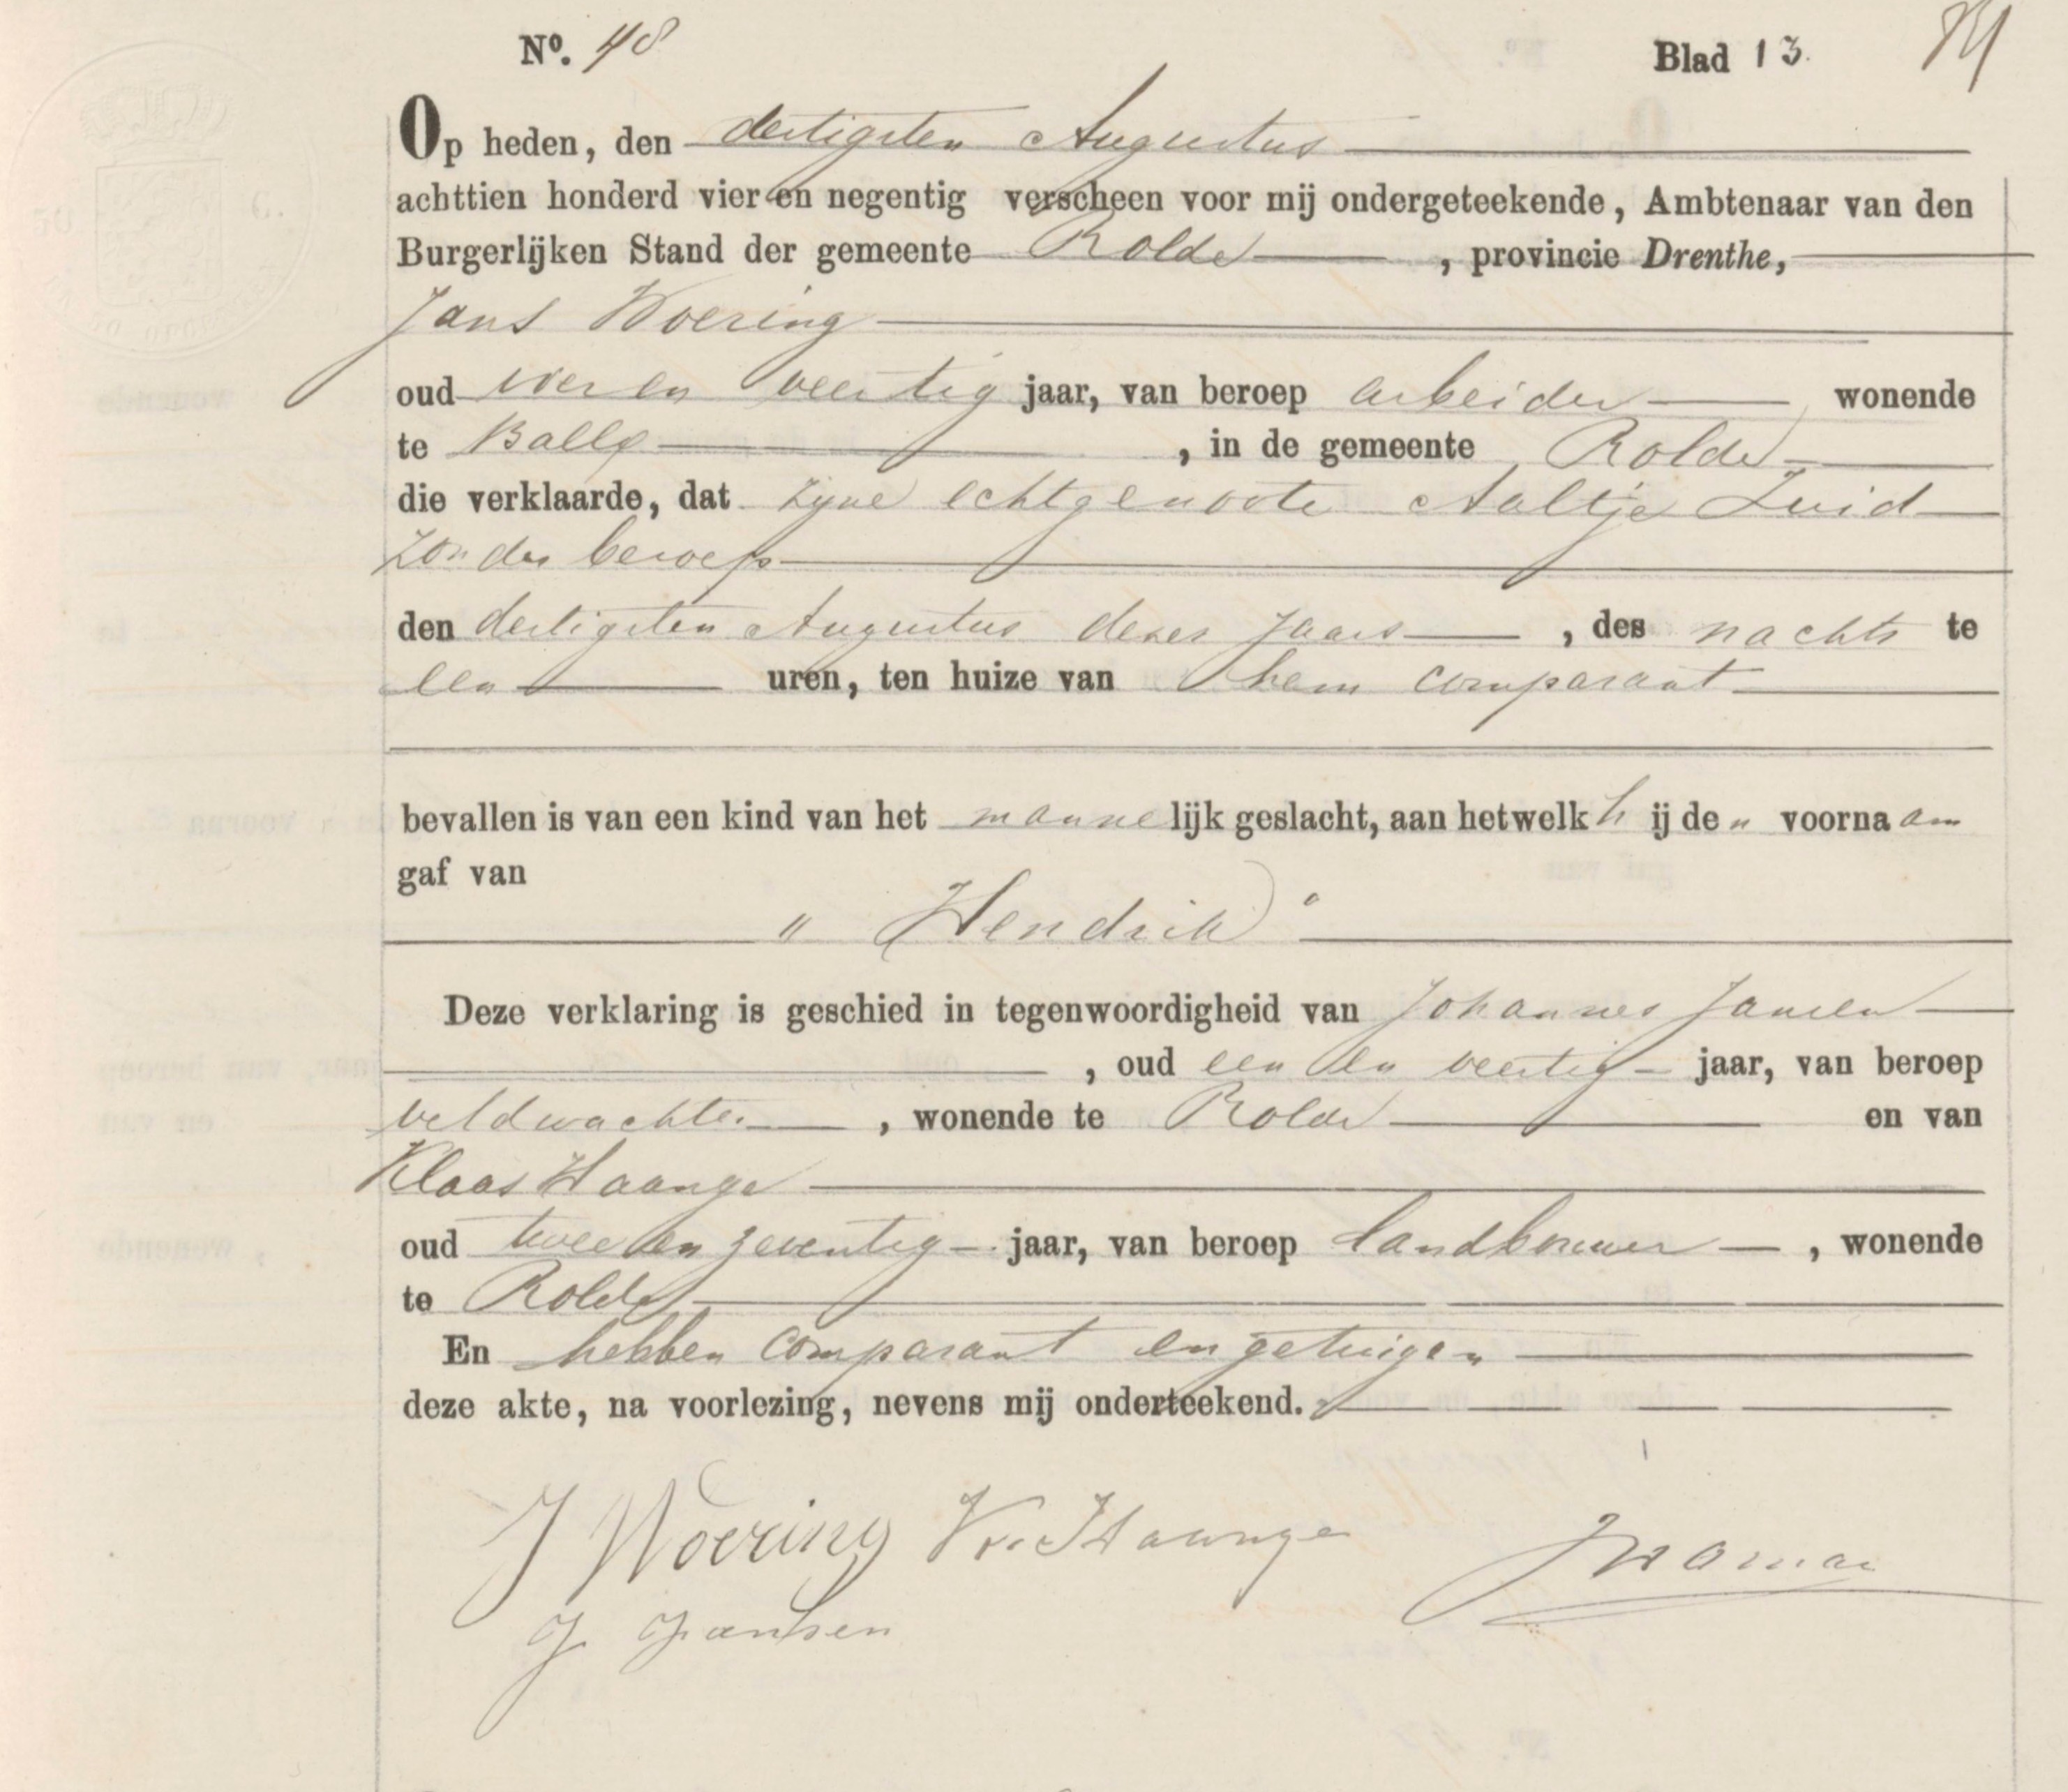 Nº. 48 Blad 13.
Op heden, den dertigsten Augustus
achttien honderd vier en negentig verscheen voor mij ondergeteekende, Ambtenaar van den
Burgerlijken Stand der gemeente Rolde, provincie Drenthe,
Jans Woering
oud vier en veertig jaar, van beroep arbeider wonende
te Balloo, in de gemeente Rolde
die verklaarde, dat zijne echtgenoote Aaltje Zuid
zonder beroep
den dertigsten Augustus dezes jaars, des nachts te
een uren, ten huize van hem comparant
bevallen is van een kind van het mannelijk geslacht, aan hetwelk hij den voornaam
gaf van
" Hendrik "
Deze verklaring is geschied in tegenwoordigheid van Johannes Jansen
, oud een en veertig jaar, van beroep
veldwachter, wonende te Rolde en van
Klaas Haange
oud twee en zeventig jaar, van beroep landbouwer, wonende
te Rolde
En hebben comparant en getuigen
deze akte, na voorlezing, nevens mij onderteekend.
J Woering K. Haange
J Jansen